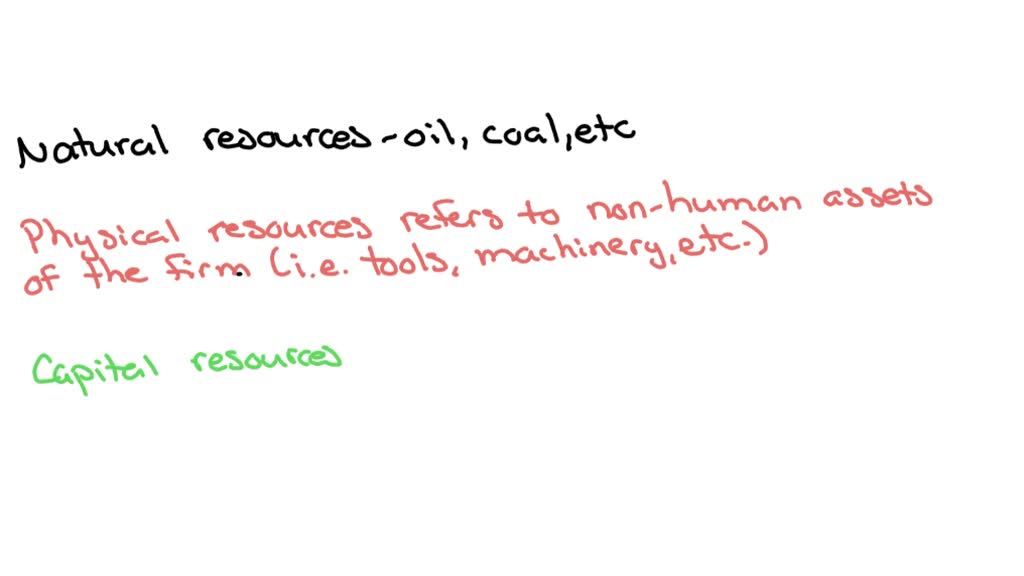 Natural resources - oil, coal, etc
Physical resources refers to non-human assets
of the firm (i.e. tools, machinery, etc.)
Capital resources